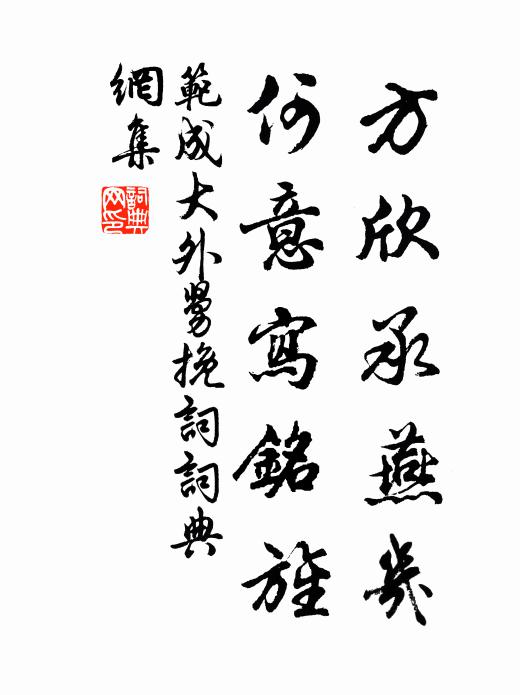 方欣承燕幾
何意寫銘旌
範成大外舅挽詞詞典
網集
詞典網印